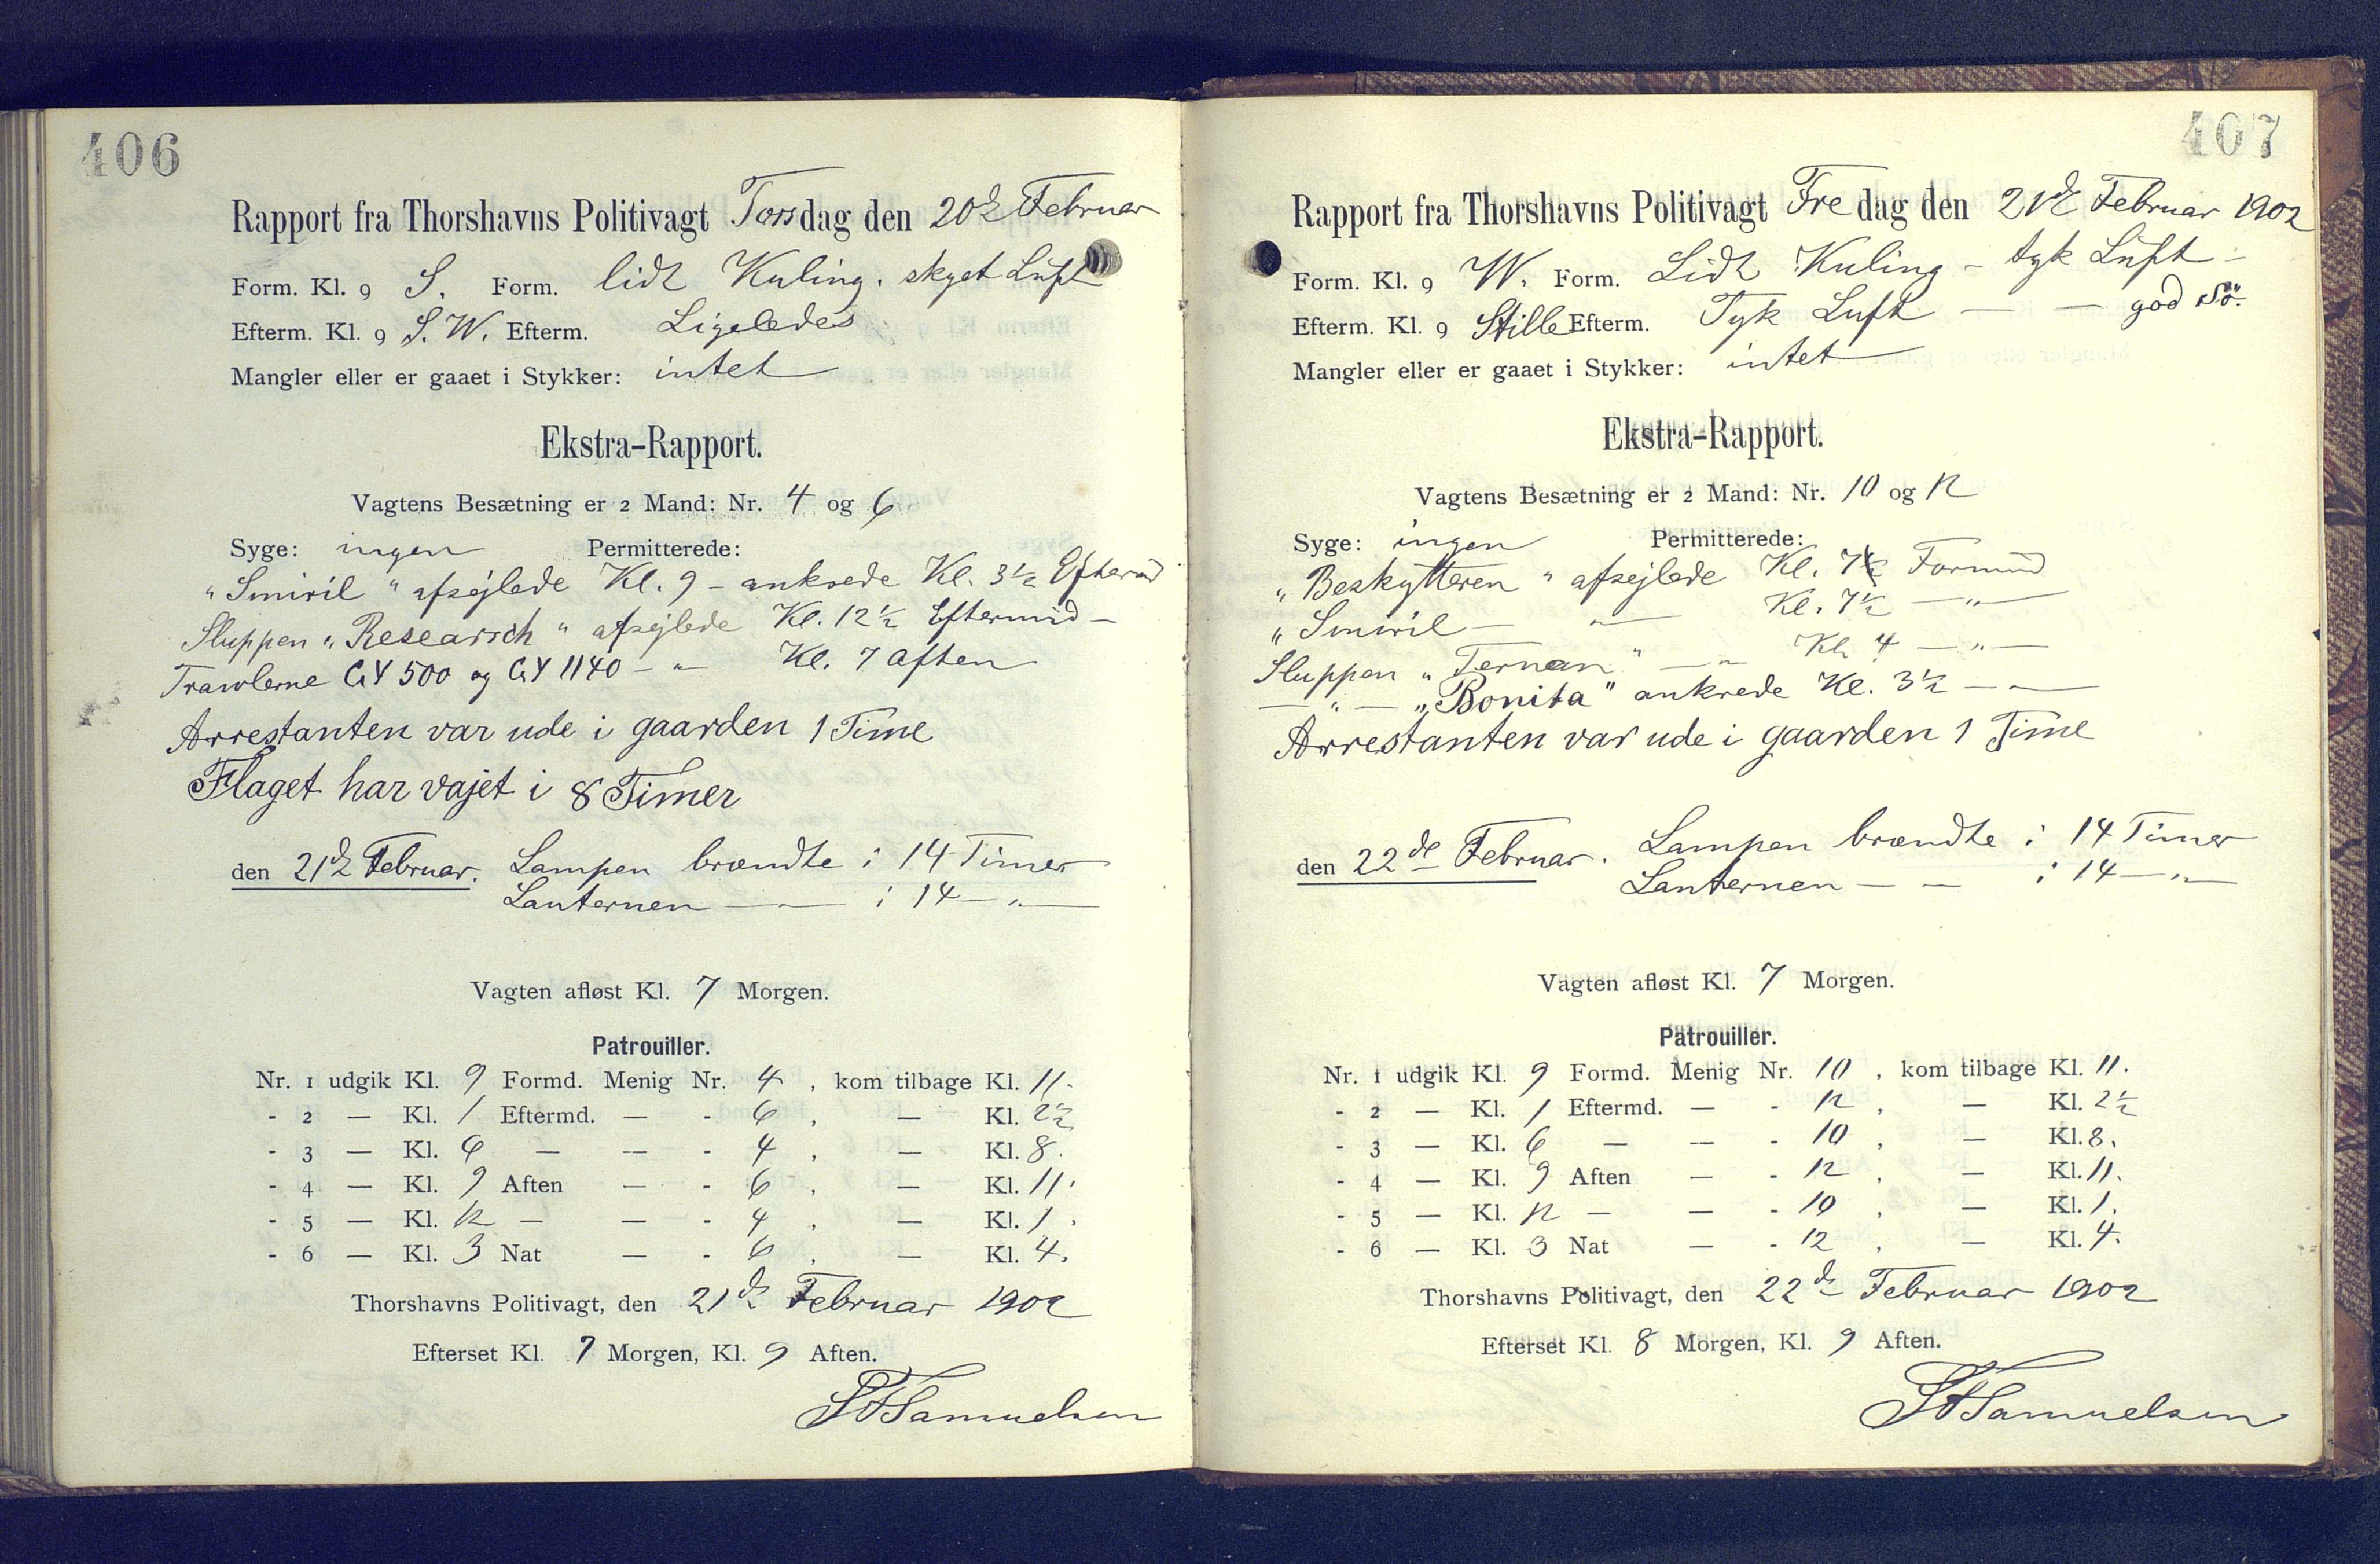 406
Rapport fra Thorshavns Politivagt Torsdag den 20de Februar
Form. Kl. 9 S. Form. lidt Kuling. skyet Luft
Efterm. Kl. 9 S.W. Efterm. Ligeledes
Mangler eller er gaaet i Stykker: intet
Ekstra-Rapport.
Vagtens Besætning er 2 Mand: Nr. 4 og 6
Syge: ingen Permitterede:
"Smiril" afsejlede Kl. 9 - ankrede Kl. 3½ Eftermd
Sluppen "Researsch" afsejlede Kl. 12½ Eftermid -
Trawlerne GY 500 og GY 1140 - " - Kl. 7 aften
Arrestanten var ude i gaarden 1 Time
Flaget har vajet i 8 Timer
den 21de Februar. Lampen brændte i 14 Timer
Lanternen — " — i 14 — " —
Vagten afløst Kl. 7 Morgen.
Patrouiller.
Nr. 1 udgik Kl. 9 Formd. Menig Nr. 4, kom tilbage Kl. 11.
- 2 — Kl. 1 Eftermd. — - 6, — Kl. 2½
- 3 — Kl. 6 — — - 4, — Kl. 8.
- 4 — Kl. 9 Aften — - 6, — Kl. 11.
- 5 — Kl. 12 — — - 4, — Kl. 1.
- 6 — Kl. 3 Nat — - 6, — Kl. 4.
Thorshavns Politivagt, den 21de Februar 1902
Efterset Kl. 7 Morgen, Kl. 9 Aften.
Samuelsen
407
Rapport fra Thorshavns Politivagt Fredag den 21de Februar 1902
Form. Kl. 9 W. Form. Lidt Kuling - tyk Luft -
Efterm. Kl. 9 Stille Efterm. Tyk Luft — — god Sö.
Mangler eller er gaaet i Stykker: intet
Ekstra-Rapport.
Vagtens Besætning er 2 Mand: Nr. 10 og 12
Syge: ingen Permitterede:
"Beskytteren" afsejlede Kl. 7½ Formid
"Smiril — " — Kl. 7½ — " —
Sluppen "Ternen" — " Kl. 4 — " —
— " — "Bonita" ankrede Kl. 3½ — " —
Arrestanten var ude i gaarden 1 Time
den 22de Februar. Lampen brændte i 14 Timer
Lanternen — — i 14 — " —
Vagten afløst Kl. 7 Morgen.
Patrouiller.
Nr. 1 udgik Kl. 9 Formd. Menig Nr. 10, kom tilbage Kl. 11.
- 2 — Kl. 1 Eftermd. — - 12, — Kl. 2½
- 3 — Kl. 6 — — - 10, — Kl. 8.
- 4 — Kl. 9 Aften — - 12, — Kl. 11.
- 5 — Kl. 12 — — - 10, — Kl. 1.
- 6 — Kl. 3 Nat — - 12, — Kl. 4.
Thorshavns Politivagt, den 22de Februar 1902
Efterset Kl. 8 Morgen, Kl. 9 Aften.
Samuelsen